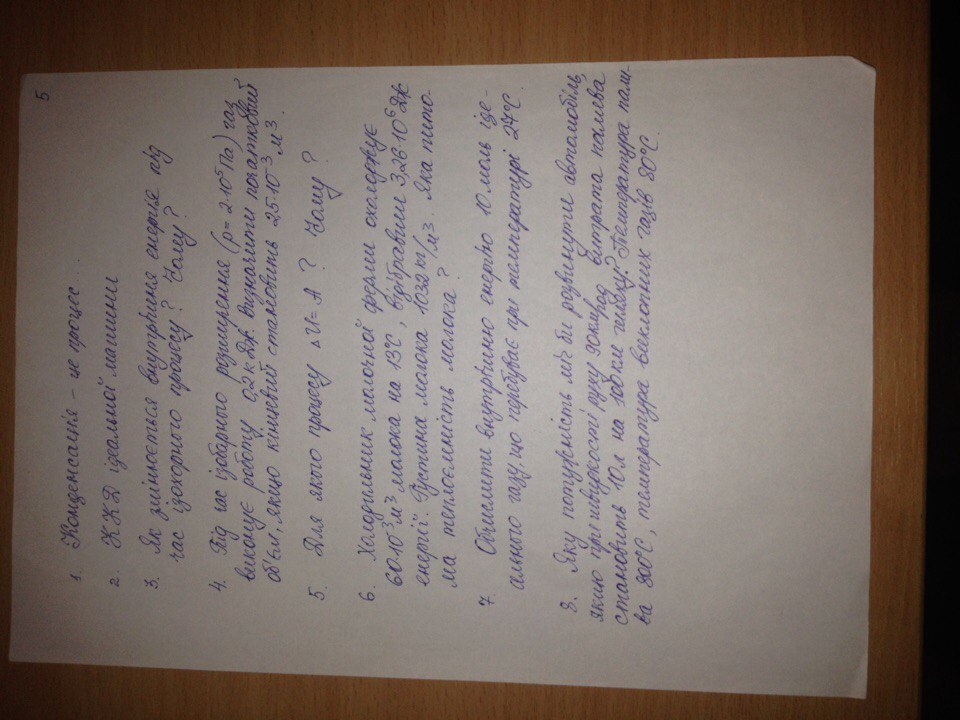 5
1. Конденсація – це процес...
2. ККД ідеальної машини
3. Як змінюється внутрішня енергія під
час ізохорного процесу? Чому?
4. Під час ізобарного розширення (p = 2·10⁵Па) газ
виконує роботу 0,2 кДж. Визначити початковий
об'єм, якщо кінцевий становить 25·10⁻³ м³.
5. Для якого процесу ΔU = A? Чому?
6. Холодильник молочної ферми охолоджує
60·10⁻³ м³ молока на 13°С, відібравши 3,26·10⁶ Дж
енергії. Густина молока 1032 кг/м³. Яка пито-
ма теплоємність молока?
7 Обчислити внутрішню енергію 10 моль іде-
ального газу, що перебуває при температурі 27°С.
8. Яку потужність міг би розвинути автомобіль,
якщо при швидкості руху 90 км/год витрата палива
становить 10л на 100 км шляху? Температура пали-
ва 800°С, температура вихлопних газів 80°С